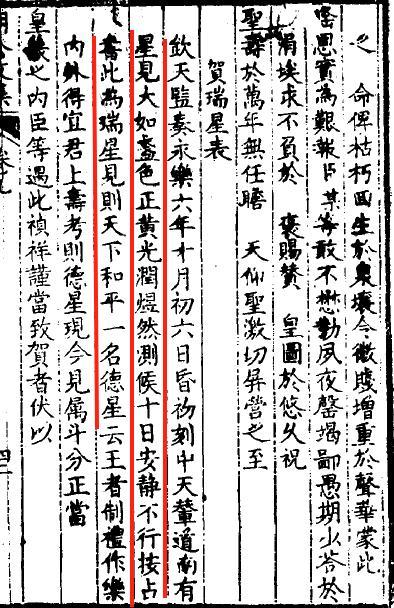 之　命俾枯朽回生於衆壤令微賤增重於聲華蒙此
思實為艱報臣某等敢不懋勤夙夜罄竭鄙愚期少答於
涓埃求不負於　褒賜贊　皇圖於悠久祝
聖壽於萬年無任瞻　天仰聖激切屏營之至
賀瑞星表
欽天監奏永樂六年十月初六日昏初刻中天輦道南有
星見大如盞色正黃光潤煜然測候十日安靜不行按占
書此為瑞星見則天下和平一名德星云王者制禮作樂
內外得宜君上壽考則德星現今見属斗分正當
皇畿之內臣等遇此禎祥謹當致賀者伏以